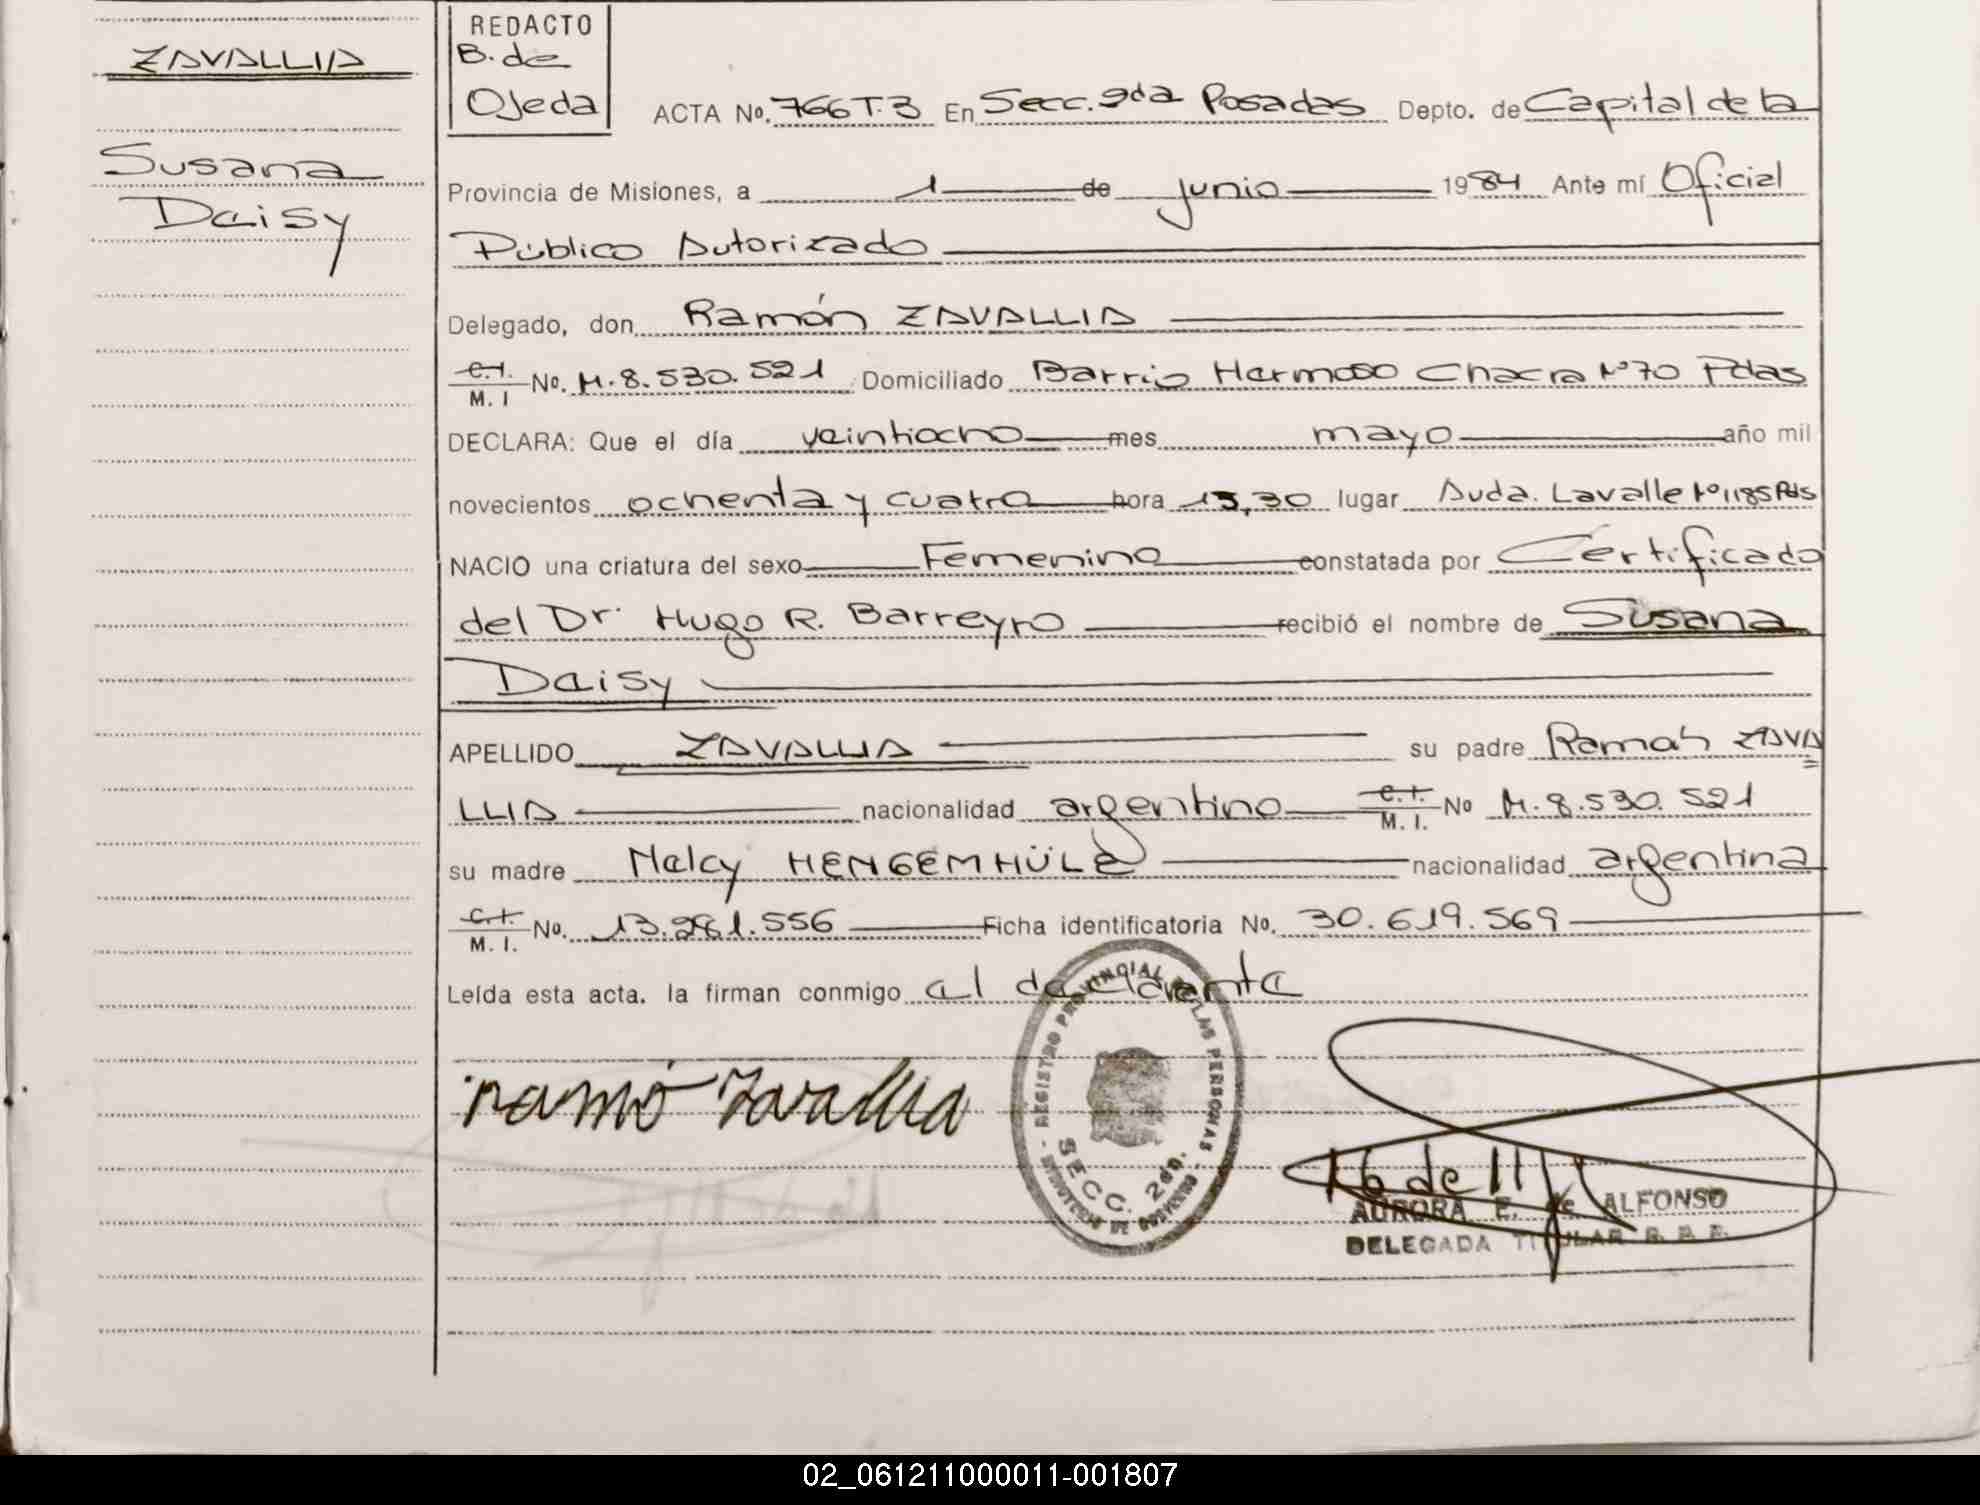 ZAVALLIA
Susana
Daisy
REDACTO
B. de
Ojeda
ACTA No. 766 T. 3 En Secc. 2da Posadas Depto. de Capital de la
Provincia de Misiones, a 1 de junio 1984 Ante mí Oficial
Público Autorizado
Delegado, don Ramón ZAVALLIA
C.I. M. I No. M. 8. 530. 521 Domiciliado Barrio Hermoso Chacra Nº 70 Pdas
DECLARA: Que el día veintiocho mes mayo año mil
novecientos ochenta y cuatro hora 13,30 lugar Avda. Lavalle Nº 1185 Pds
NACIO una criatura del sexo Femenino constatada por Certificado
del Dr. Hugo R. Barreyro recibió el nombre de Susana
Daisy
APELLIDO ZAVALLIA su padre Ramón ZAVA
LLIA nacionalidad argentino C.I. M. I. No M. 8. 530. 521
su madre Nelcy HENGEMHÜLE nacionalidad argentina
C.I. M. I. No. 13.281.556 Ficha identificatoria No. 30. 619. 569
Leída esta acta. la firman conmigo al declarante
Ramó Zavallia
REGISTRO PROVINCIAL DE LAS PERSONAS
SECC. 2da.
MINISTERIO DE GOBIERNO
AURORA E. de ALFONSO
DELEGADA TITULAR R. P. P.
02_061211000011-001807